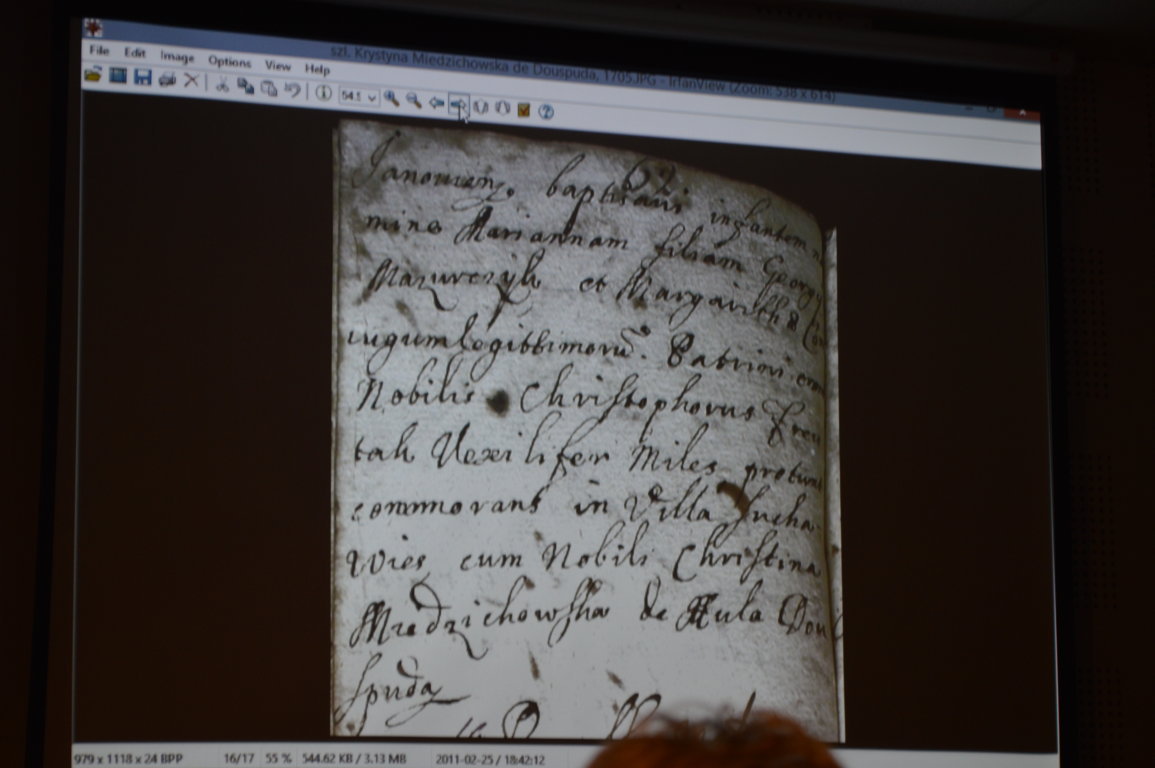 szl. Krystyna Miedzichowska de Douspuda, 1705.JPG - IrfanView (Zoom: 538 x 614)
File Edit Image Options View Help
54.5
62
Janowien. baptisavi infantem
mine Mariannam filiam Georg
Mazurczyk et Margarithæ Con
iugum legittimorū. Patrini
Nobilis Christophorus
tak Vexilifer Miles protunc
commorans in Villa Sucha
Wies cum Nobili Christina
Miedzichowska de Aula Dou
spuda
979 x 1118 x 24 BPP 16/17 55 % 544.62 KB / 3.13 MB 2011-02-25 / 18:42:12